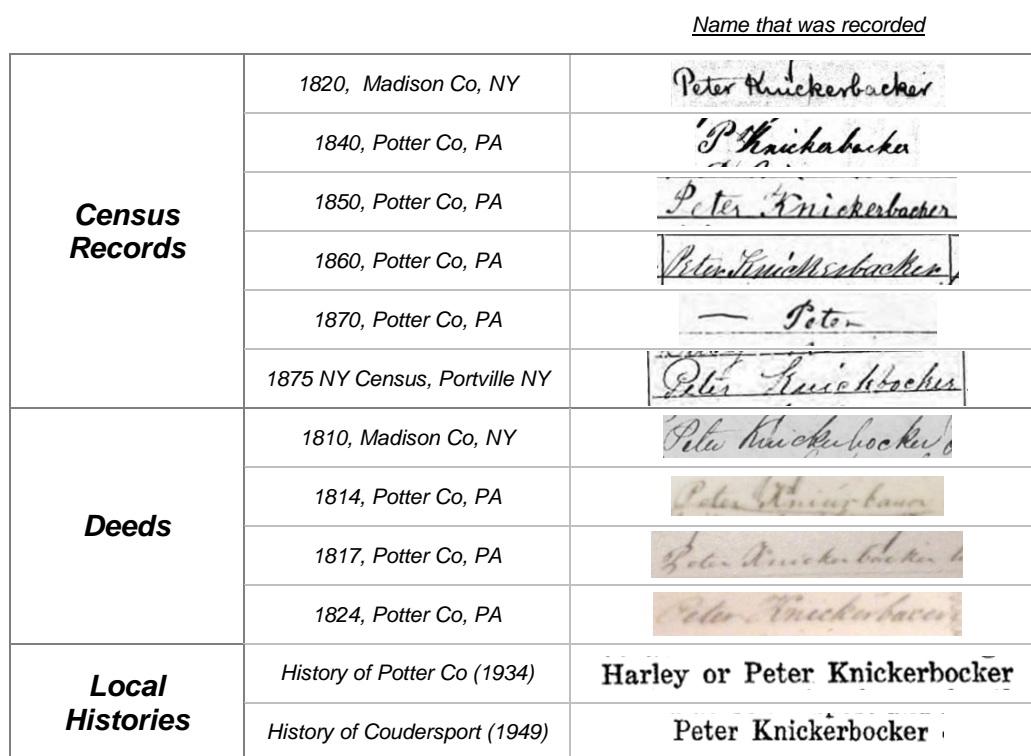 Name that was recorded
Census Records
1820, Madison Co, NY Peter Knickerbacker
1840, Potter Co, PA P Knickerbacker
1850, Potter Co, PA Peter Knickerbacker
1860, Potter Co, PA Peter Knickerbacker
1870, Potter Co, PA — Peter
1875 NY Census, Portville NY Peter Knickbocker
Deeds
1810, Madison Co, NY Peter Knickerbocker
1814, Potter Co, PA Peter
1817, Potter Co, PA Peter Knickerbacker
1824, Potter Co, PA Peter
Local Histories
History of Potter Co (1934) Harley or Peter Knickerbocker
History of Coudersport (1949) Peter Knickerbocker